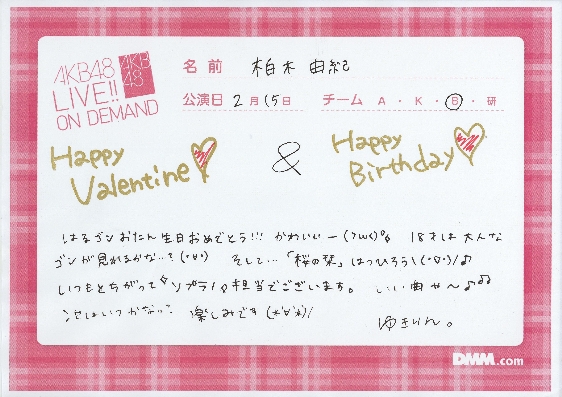 AKB48
LIVE!!
ON DEMAND
AKB
48
名前 柏木由紀
公演日 2月15日 チーム A・K・B・研
Happy
Valentine
&
Happy
Birthday
はるゴンおたん生日おめでとう!!! かわいいー 18才は大人な
ゴンが見れるかな…? そして…「桜の栞」はつひろう\(・▽・)/♪
いつもとちがってソプラノ担当でございます。 いい曲や〜♪
楽しみです
ゆきりん。
DMM.com